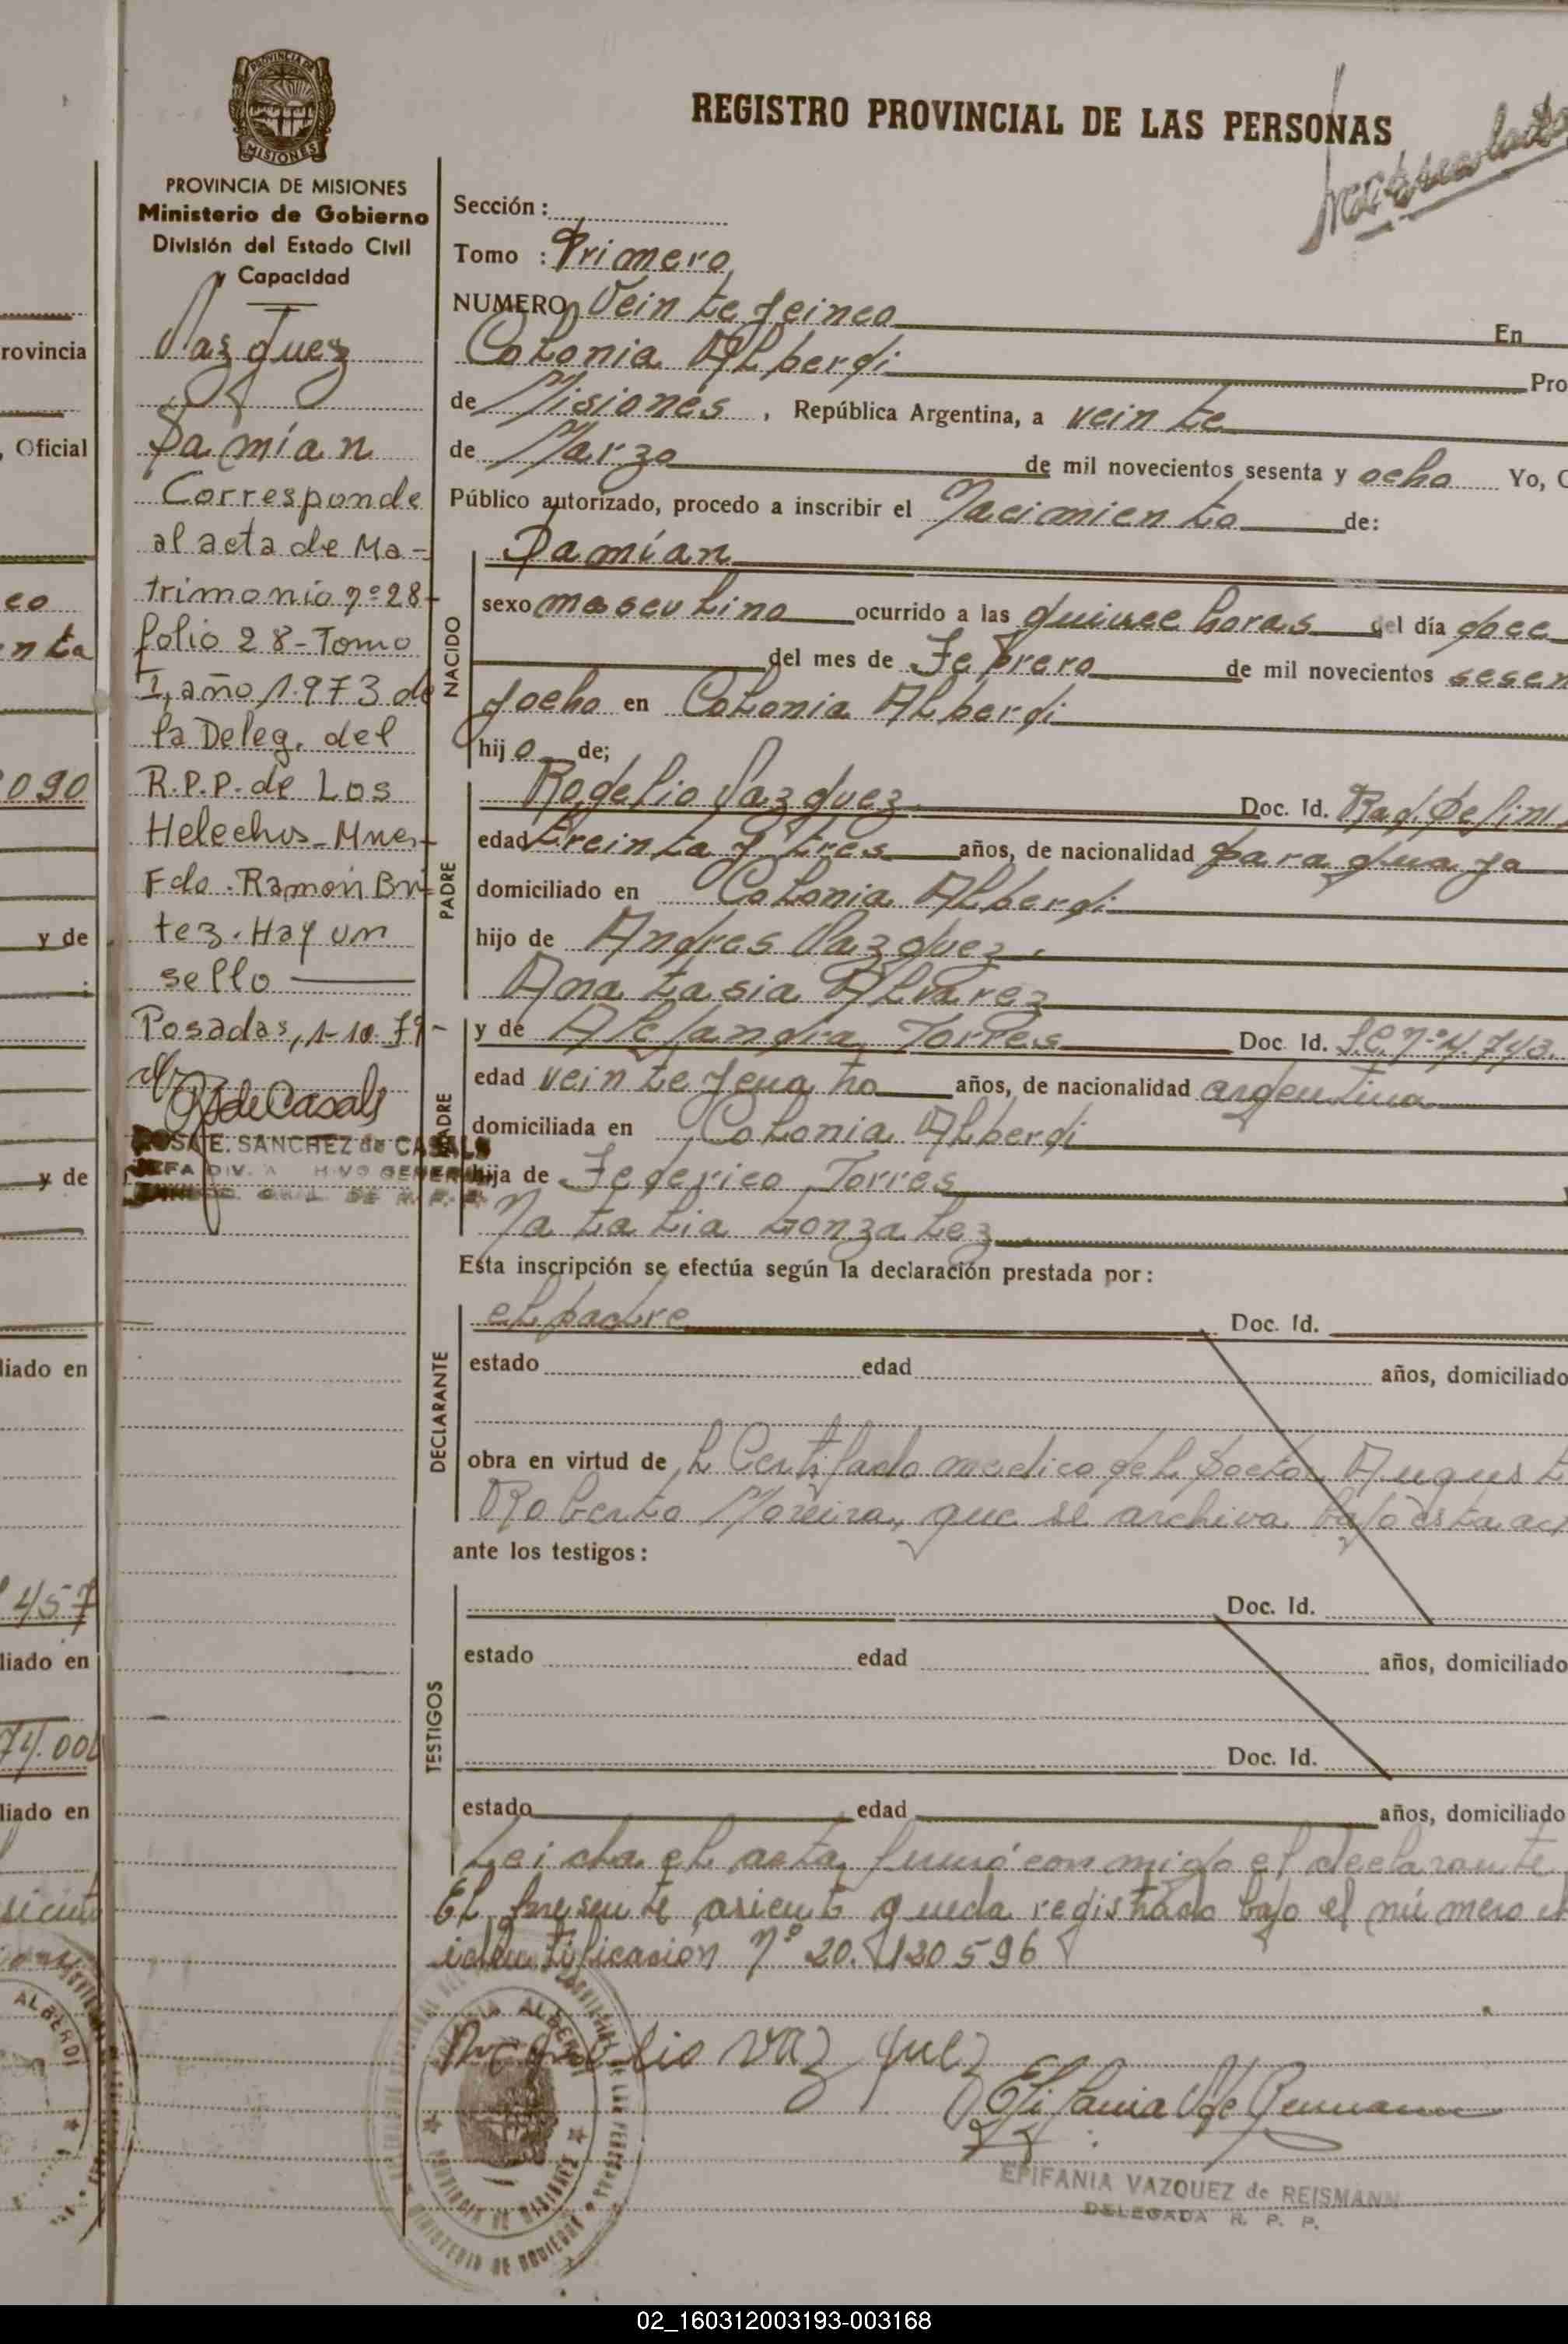 PROVINCIA DE
MISIONES
PROVINCIA DE MISIONES
Ministerio de Gobierno
División del Estado Civil
y Capacidad
Vazquez
Damían
Corresponde
al acta de Ma-
trimonio nº 28-
folio 28-Tomo
I, año 1.973 de
la Deleg. del
R.P.P. de Los
Helechos-Mnes-
Fdo. Ramón Bri-
tez. Hay un
sello
Posadas, 1-10-79-
ROSA E. SANCHEZ de CASALS
JEFA DIV. ARCHIVO GENERAL
REGISTRO PROVINCIAL DE LAS PERSONAS
Matriculado
Sección:
Tomo : Primero
NUMERO Veinteycinco En
Colonia Alberdi Pro
de Misiones, República Argentina, a veinte
de Marzo de mil novecientos sesenta y ocho Yo, O
Público autorizado, procedo a inscribir el Nacimiento de:
NACIDO
Damían
sexo masculino ocurrido a las quince horas del día doce
del mes de Febrero de mil novecientos sesen
yocho en Colonia Alberdi
hijo de;
PADRE
Rogelio Vazquez Doc. Id.
edad treinta y tres años, de nacionalidad paraguaya
domiciliado en Colonia Alberdi
hijo de Andres Vazquez.
Anatasia Alvarez
MADRE
y de Alejandra Torres Doc. Id.
edad veinteycuatro años, de nacionalidad argentina
domiciliada en Colonia Alberdi
hija de Federico Torres
Natalia Gonzalez
Esta inscripción se efectúa según la declaración prestada por:
DECLARANTE
el padre Doc. Id.
estado edad años, domiciliado
obra en virtud de l Certifado medico del Doctor August
Roberto Moreira, que se archiva bajo esta ac
ante los testigos:
TESTIGOS
Doc. Id.
estado edad años, domiciliado
Doc. Id.
estado edad años, domiciliado
Leida el acta, firmó conmigo el declarante
El presente asiento queda registrado bajo el número d
identificación Nº 20.120596
Rogelio vaz quez
EPIFANIA VAZQUEZ de REISMANN
DELEGADA R. P. P.
COLONIA ALBERDI
PROVINCIA DE MISIONES
MINISTERIO DE GOBIERNO
rovincia
, Oficial
nta
090
y de
y de
liado en
457
liado en
74.000
liado en
ALBERDI
02_160312003193-003168